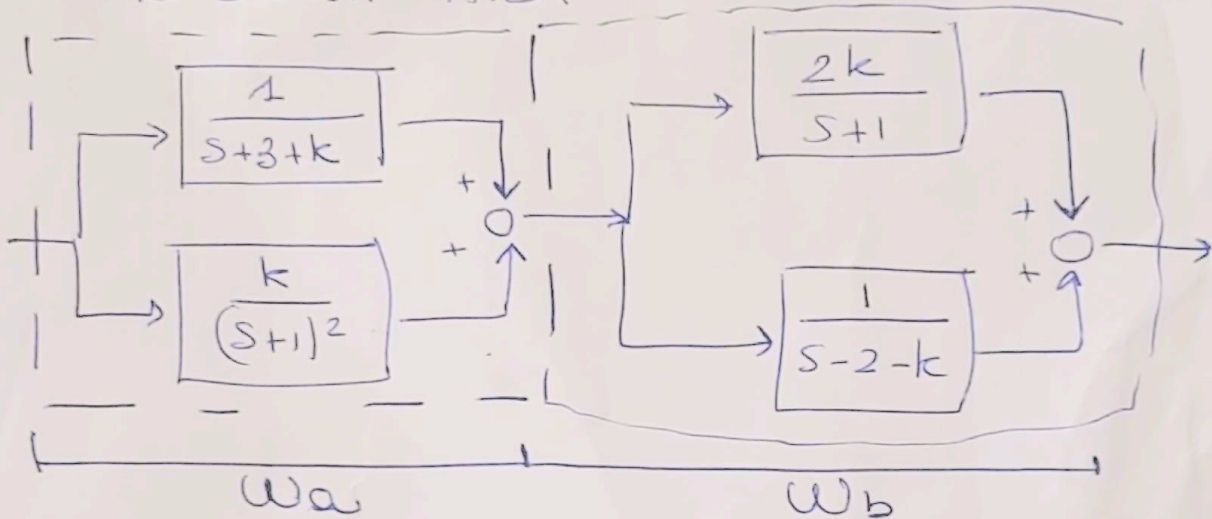 1
s+3+k
+
k
(s+1)²
+
2k
s+1
+
1
s-2-k
+
Wa
Wb